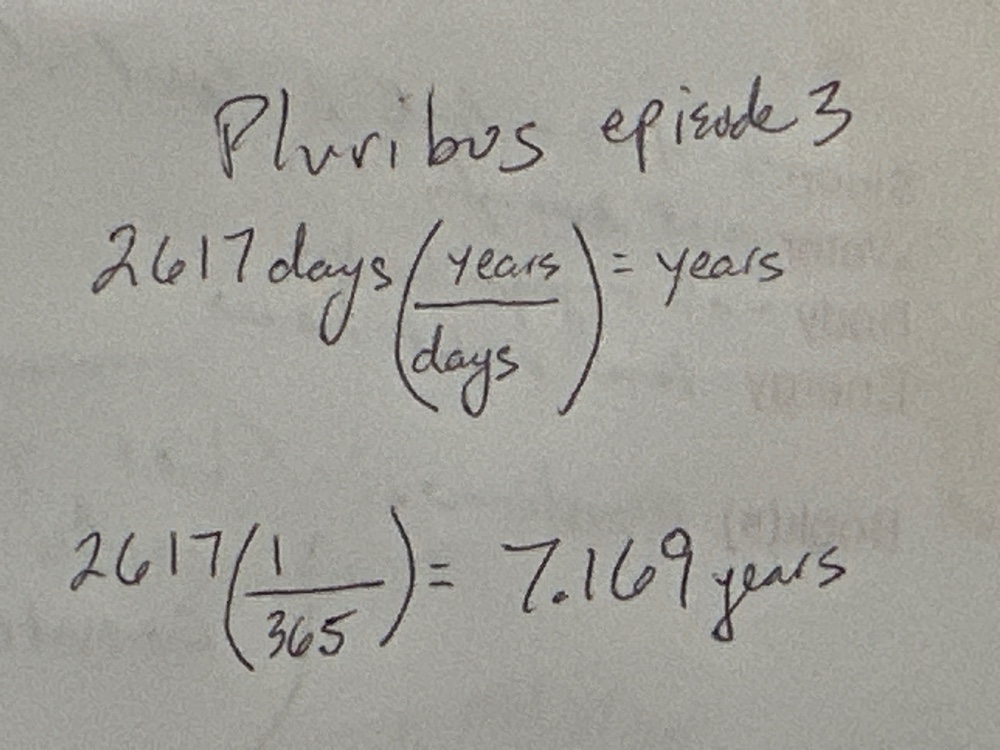 Pluribus episode 3
2617 days (years/days) = years
2617 (1/365) = 7.169 years